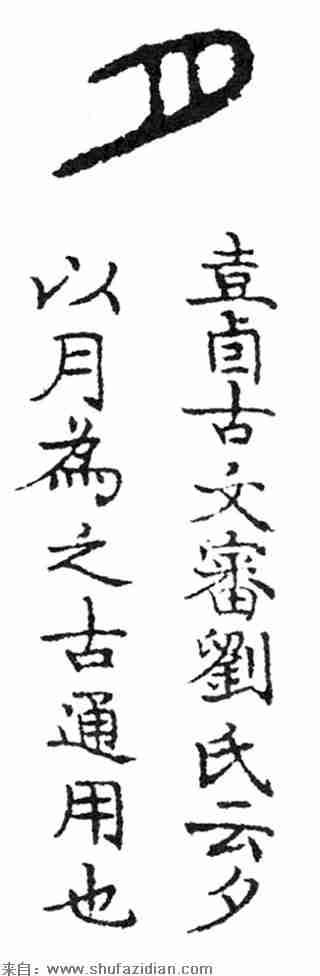 壴卣古文審劉氏云夕
以月為之古通用也
来自：www.shufazidian.com